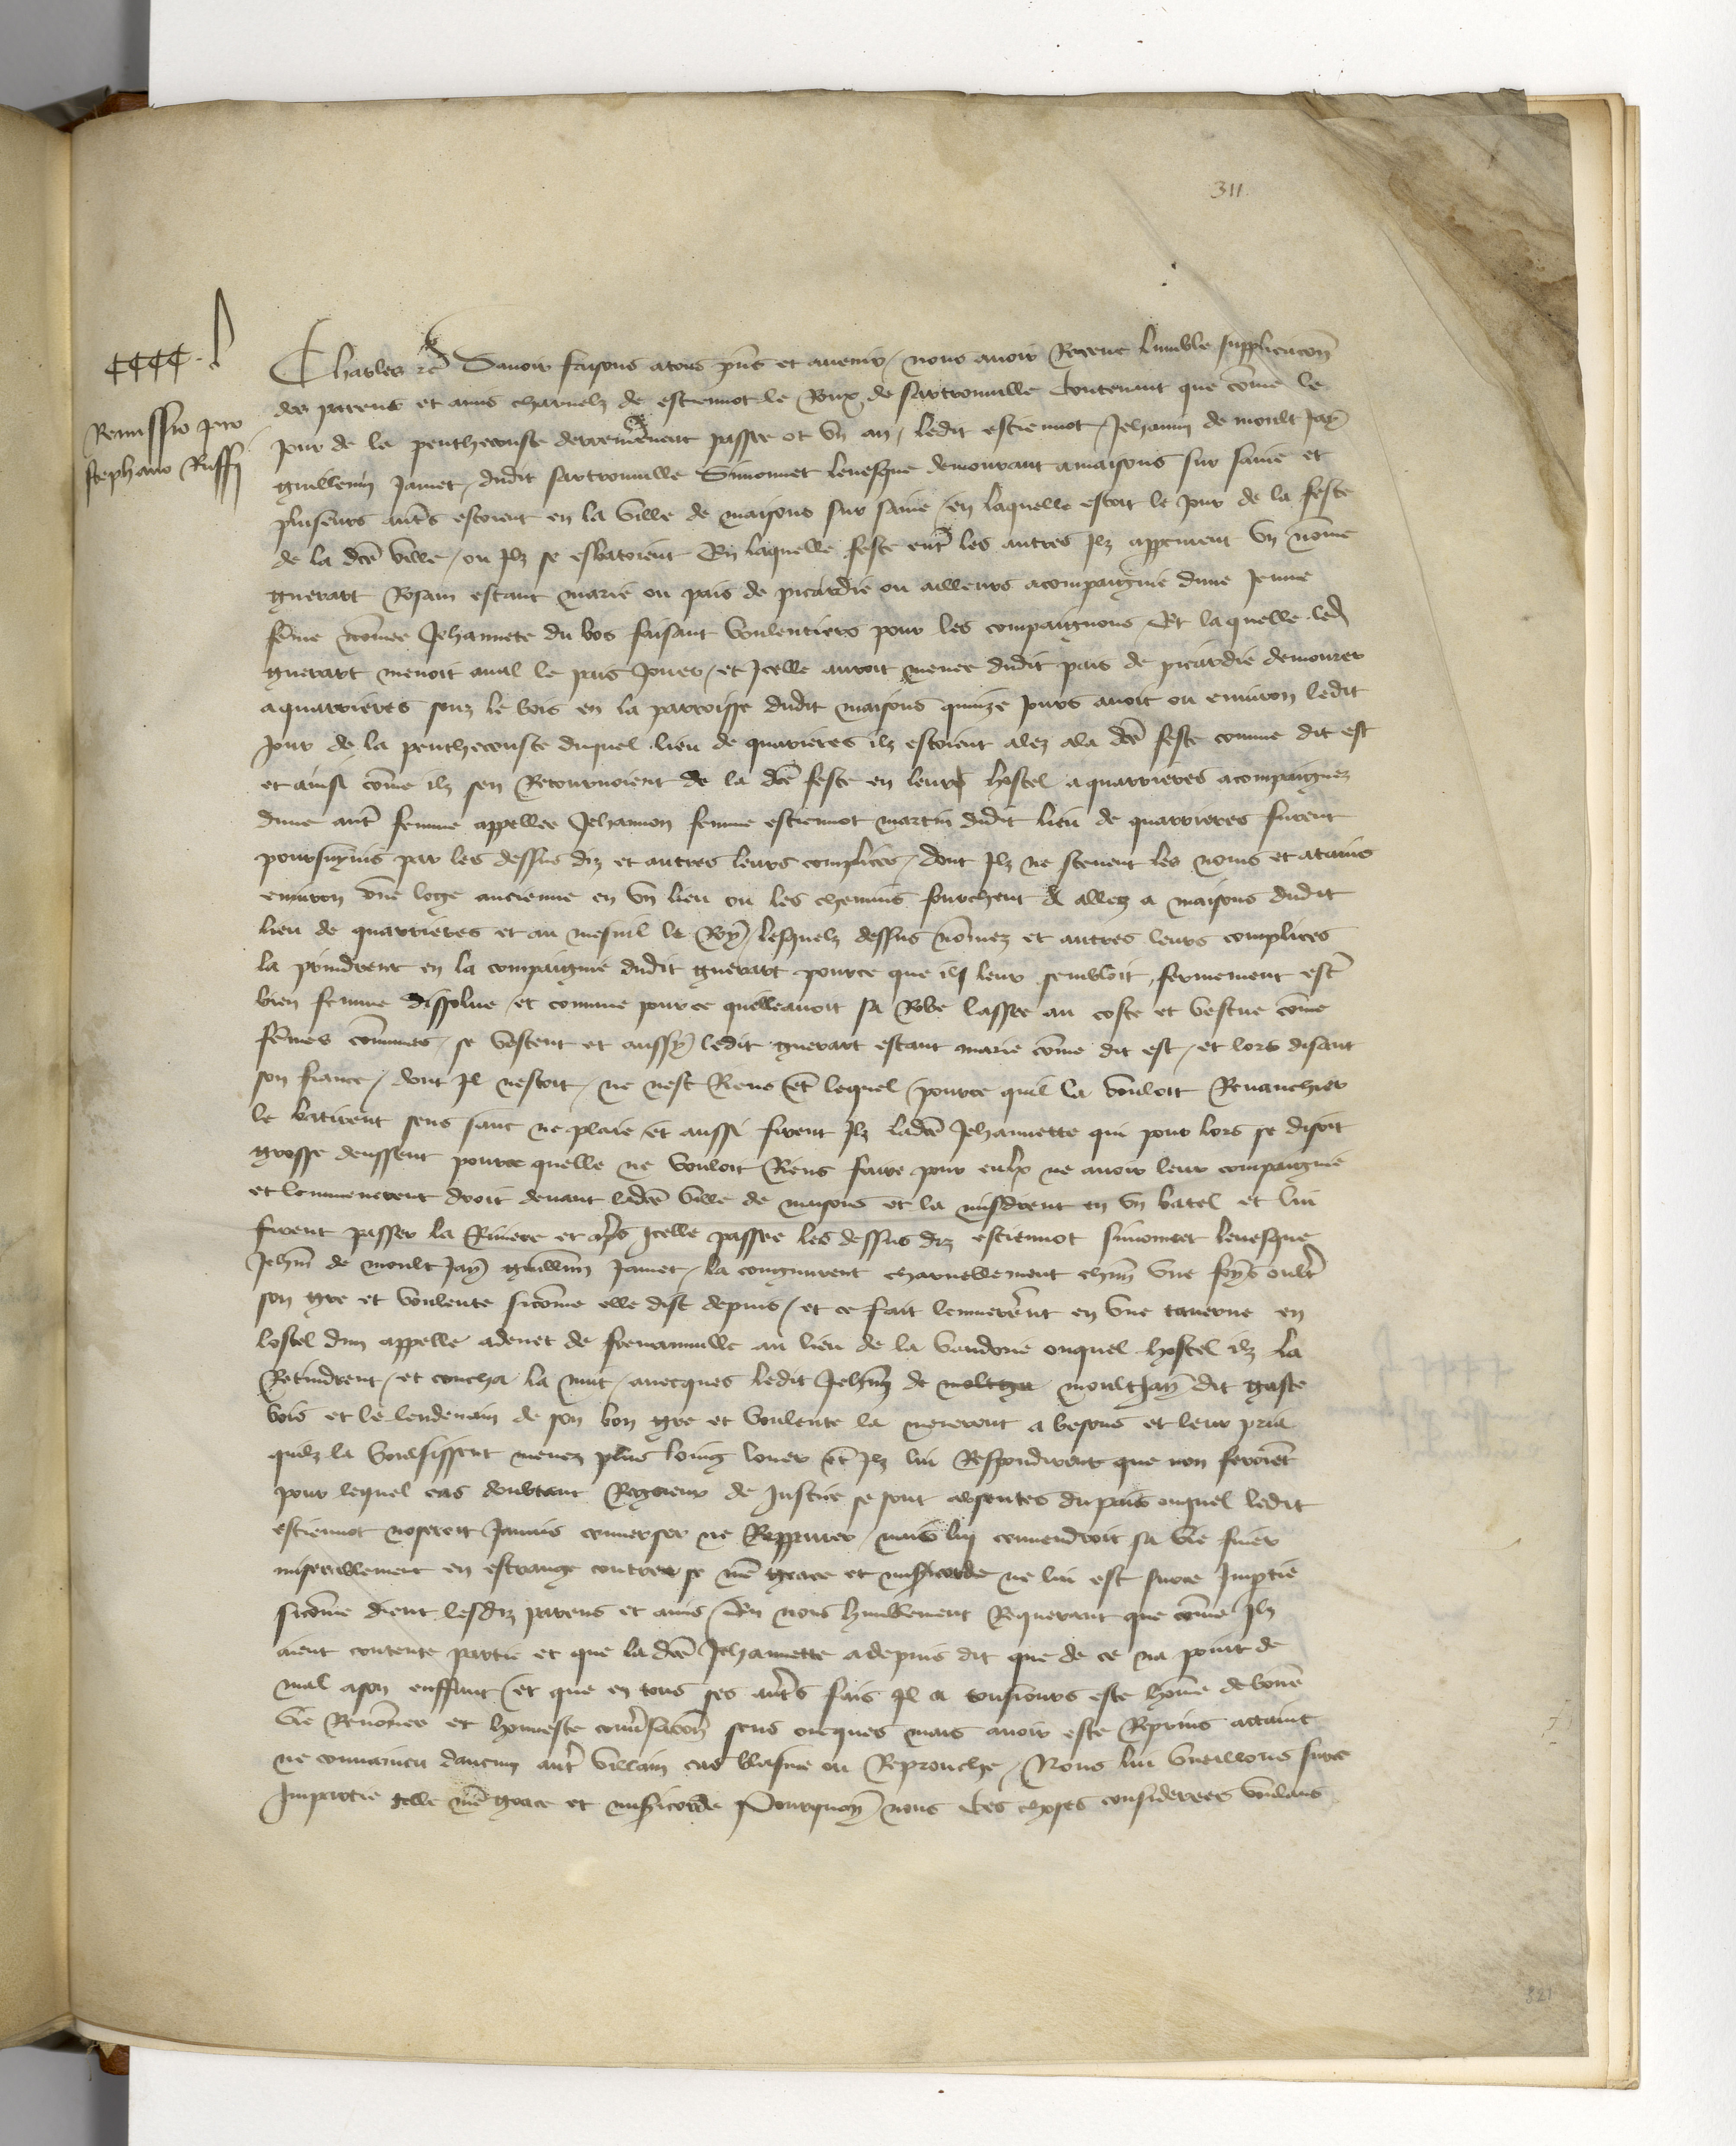 311
Charles etc Savoir faisons atous pñs et avenir / nous avoir Receue lumble supplicacoñ
des parens et amis charnelz de estiennot le Roux de sartrouville Contenant que cõme le
Remissio pro
stephano Ruffi
jour de la penthecouste derrenierement passee ot vn an / ledit estiennot / Jehanin de moult Jay
guillemin Jamet / dudit sartrouville Simonnet levesque demourant amaisons sur saine et
pluseurs autres estoient en la ville de maisons sur saine / en laquelle estoit le jour de la feste
de la dcẽ ville / ou Ilz se esbatoient En laquelle feste entre les autres Ilz apperceurent vn nõme
guerart Rosain estant marie ou pais de picardie ou ailleurs acompaignie dune jeune
fẽme nõmee Jehannete du bos faisant voulentiers pour les compaignons / Et laquelle led
guerart menoit aval le pais Jouer / et Icelle avoit menee dudit pais de picardie demourer
aquarrieres soux le bois en la parroisse dudit maisons quinze jours avoit ou environ ledit
jour de la penthecouste duquel lieu de quarieres ilz estoient alez ala dcẽ feste comme dit est
et ainsi cõme ilz sen Retournoient de la dcẽ feste en leur hostel aquarrieres acompaignez
dune autre femme appellee Jehannon femme estiennot martin dudit lieu de quarrieres furent
poursuyuis par les dessus diz et autres leurs complices / dont Ilz ne scevent les noms et atains
environ vne loge ancienne en vn lieu ou les chemins fourchent de allez a maisons dudit
lieu de quarrieres et au mesnil le Roy / lesquelz dessus nõmez et autres leurs complices
la prindrent en la compaignie dudit guerart pource que ilz leur sembloit / fermement estre
bien femme dissolue / et comme pource quelle avoit sa Robe lassee au coste et vestue cõme
fẽmes cõmunes / se vestent et aussy ledit guerart estant marie cõme dit est / et lors disant
son fiance / dont Il nestoit / ne nest Riens et lequel / pource quil la vouloit Revanchier
le batirent sens sanc ne plaie et aussi firent Ilz ladcẽ Jehannette qui pour lors se disoit
grosse denffent pource quelle ne vouloit Riens faire pour eulx ne avoir leur compaignie
et lemmenerent droit devant ladcẽ ville de maisons et la misdrent en vn batel et lui
firent passer la Riviere et aprẽs Icelle passee les dessus diz estiennot simonnet levesque
Jehñin de moult Jay guillemin Jamet / la congnurent charnellement chũn vne foys oultre
son gre et voulente sicõme elle dist depuis / et ce fait lemmenerent en vne taverne en
lostel dun appelle adenet de au lieu de la ouquel hostel ilz la
Retindrent / et coucha la nuit / avecques ledit Jehñin de moultJay dit gaste
bois et le lendemain de son bon gre et voulente la menerent a besons et leur pria
quilz la voulsissent menez plus loing louer et Ilz lui Respondirent que non feroient
pour lequel cas doubtant Rigueur de Justice se sont absentes du pais ouquel ledit
estiennot noseroit Jamais converser ne Repparer / mais luy convendroit sa vie finer
miserablement en estrange contree se nrẽ grace et misericorde ne lui est sur ce Impartie
sicõme dient lesdiz parens et amis / En nous humblement Requerant que cõme Ilz
aient contente partie et que la dcẽ Jehannette adepuis dit que de ce na point de
mal ason enffant / et que en tous ses autres fais Il a tousiours este hõme de bonne
vie Renõmee et honneste conversacõn sens oncques mais avoir este Reprins attaint
ne convaincu daucun autre villain cas blasme ou Reprouche / Nous lui vueillons sur ce
Impartir Icelle nrẽ grace et misericorde Pourquoy nous Ces choses considerees voulans
321